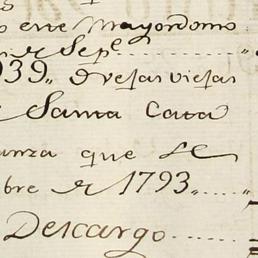 o este Mayordomo
Sepe
939,, ovejas viejas
Santa Cata
anza que se
bre de 1793,,
Descargo